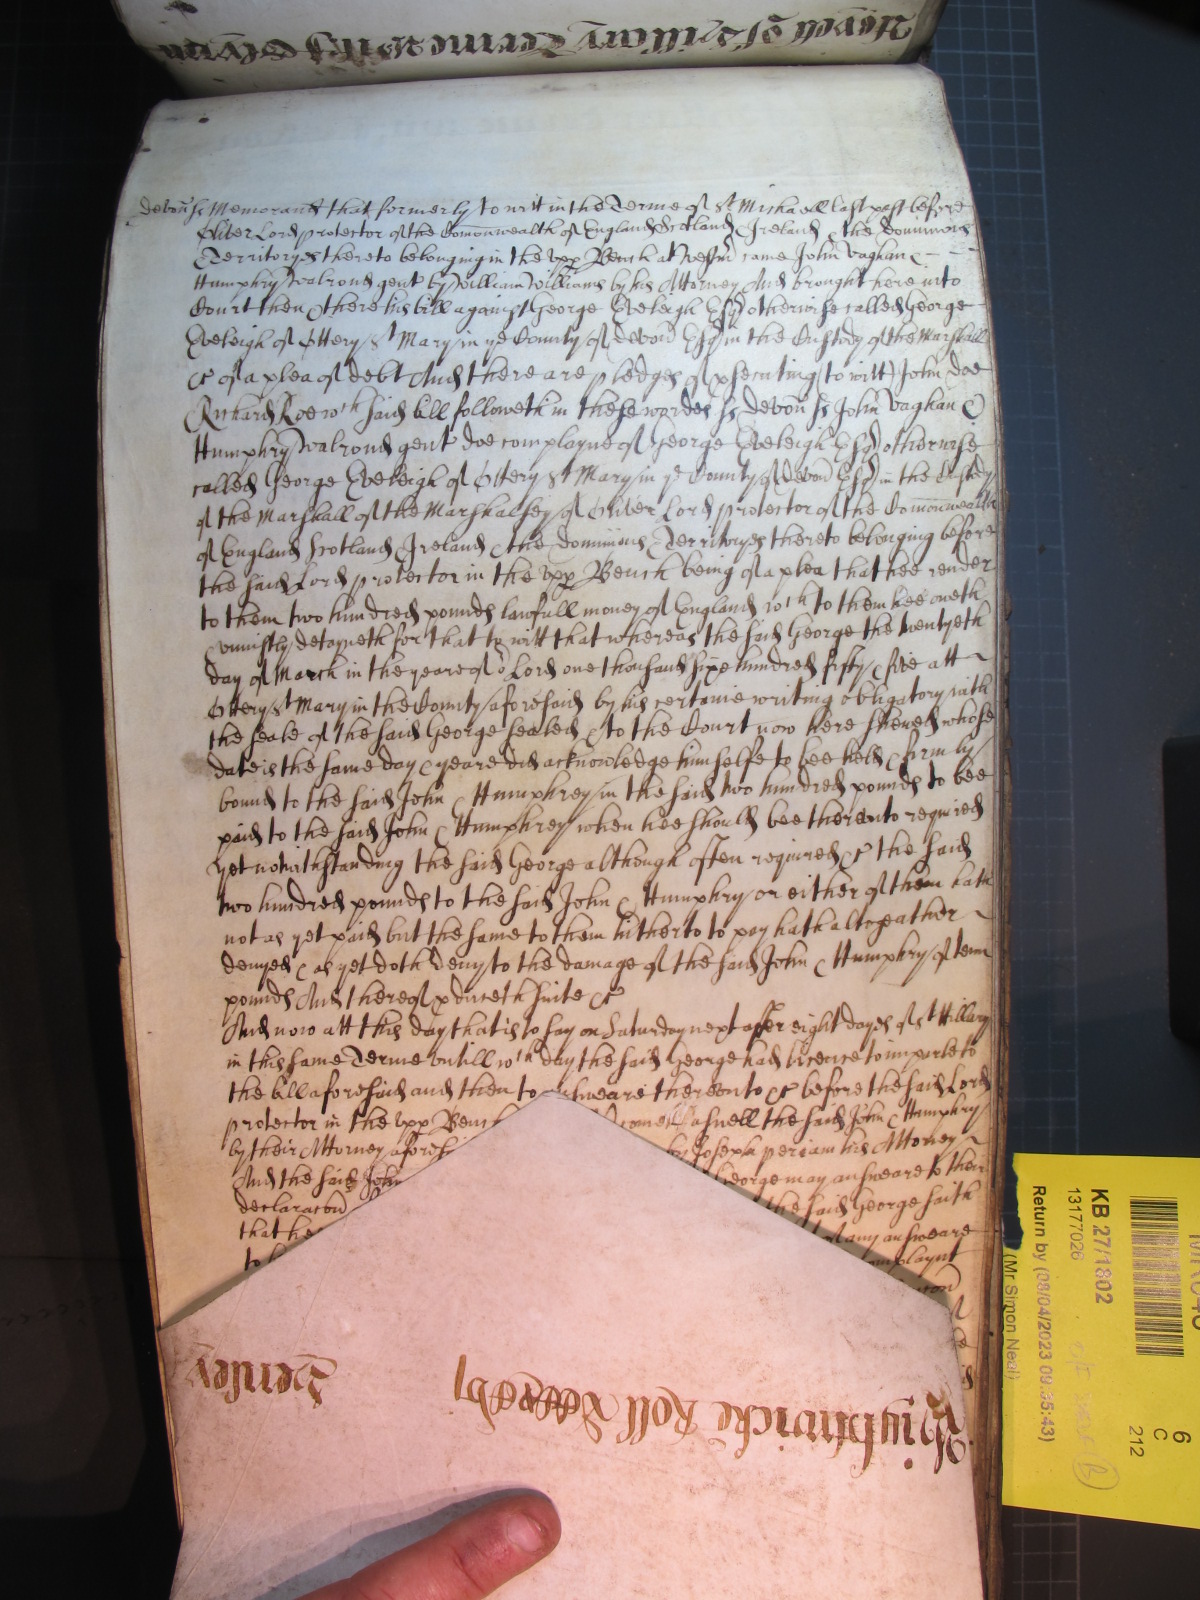 devoñ ss Memorand that formerly to witt in the Terme of St Michaell last past before
Oliver Lord protector of the Comonwealth of England Scotland & Ireland & the Dominions
& Territoryes thereto belonging in the vpp Bench at Westmr came John Vaghan & -
Humphry Walrond gent by William Williams his Attorney And brought here into
Court then & there his bill against George Eveleigh Esqr otherwise called George
Eveleigh of Ottery St Mary in ye County of devon Esqr in the Custody of the Marshall
&c of a plea of debt And there are pledges of psecuting (to witt) John Doe
& Richard Roe wch said bill followeth in these wordes ss devon ss John Vaghan &
Humphry Walrond gent doe complayne of George Eveleigh Esqr otherwise
called George Eveleigh of Ottery St Mary in ye County of devon Esqr in the Custody
of the Marshall of the Marshalsey of Oliver Lord protector of the Comonwealth
of England Scotland & Ireland & the Dominions & Territoryes thereto belonging before
the said Lord protector in the vpp Bench being of a plea that hee render
to them two hundred pounds lawfull money of England wch to them hee oweth
& vniustly detayneth for that to witt that whereas the said George the twentyeth
day of March in the yeare of or Lord one thousand sixe hundred fifty & five att
Ottery St Mary in the County aforesaid by his certaine writing obligatory with
the seale of the said George sealed & to the Court now here shewed whose
date is the same day & yeare did acknowledge himselfe to bee held & firmly
bound to the said John & Humphrey in the said two hundred pounds to bee
paid to the said John & Humphrey when hee should bee therevnto required
yet notwithstanding the said George although often required &c the said
two hundred pounds to the said John & Humphry or either of them hath
not as yet paid but the same to them hitherto to pay hath altogeather
denyed & as yet doth deny to the damage of the said John & Humphry of tenn
pounds And thereof pduceth suite &c
And now att this day that is to say on Saturday next after eight dayes of St Hillary
in this same Terme vntill wch day the said George had licence to imparle to
the bill aforesaid and then to answeare therevnto &c before the said Lord
protector in the vpp Bench come aswell the said John & Humphry
by their Attorney aforesi by Joseph periam his Attorney
And the said John George may answeare to their
declaracon the said George saith
that he any answeare
to complaynt
KB 27/1802
13177026
Return by (08/04/2023 09:35:43)
(Mr Simon Neal)
6
C
212